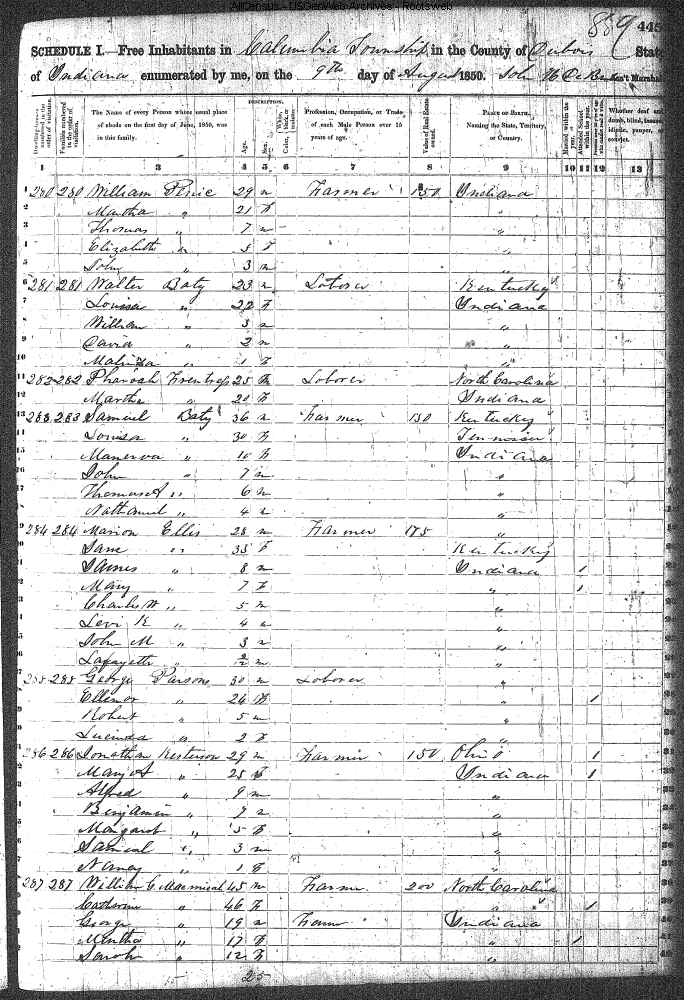 AllCensus - USGenWeb Archives - Rootsweb
889 445
SCHEDULE I.—Free Inhabitants in Columbia Township in the County of Dubois State
of Indiana enumerated by me, on the 9th day of August 1850. John Ass't Marshal
DESCRIPTION.
Dwelling-houses numbered in the order of visitation.
Families numbered in the order of visitation.
The Name of every Person whose usual place of abode on the first day of June, 1850, was in this family.
Age.
Sex.
Color, White, black, or mulatto.
Profession, Occupation, or Trade of each Male Person over 15 years of age.
Value of Real Estate owned.
PLACE OF BIRTH. Naming the State, Territory, or Country.
Married within the year.
Attended School within the year.
Whether deaf and dumb, blind, insane, idiotic, pauper, or convict.
1 2 3 4 5 6 7 8 9 10 11 12 13
280 280 William 29 m Farmer 150 Indiana
Martha " 21 f "
Thomas " 7 m "
Elizabeth " 5 f "
John " 3 m "
281 281 Walter Baty 23 m Laborer Kentucky
Louisa " 22 f Indiana
William " 3 m "
David " 2 m "
Malinda " 1 f "
282 282 Pharoah 25 m Laborer North Carolina
Martha " 20 f Indiana
283 283 Samuel Baty 36 m Farmer 130 Kentucky
Louisa " 30 f Tennessee
Manerva " 10 f Indiana
John " 7 m "
Thomas A " 6 m "
Nathaniel " 4 m "
284 284 Marion Ellis 28 m Farmer 175 "
Jane " 33 f Kentucky
James " 8 m Indiana 1
Mary " 7 f " 1
Charles W " 5 m "
Levi K " 4 m "
John M " 3 m "
Lafayette " 2/12 m "
285 285 George Parsons 30 m Laborer "
Ellenor " 24 f " 1
Robert " 5 m "
Lucinda " 2 f "
286 286 Jonathan Kesterson 29 m Farmer 150 Ohio 1
Mary A " 25 f Indiana 1
Alfred " 9 m "
Benjamin " 7 m "
Margaret " 5 f "
Samuel " 3 m "
Nancy " 1 f "
287 287 William C 45 m Farmer 200 North Carolina
Catherine " 46 f " 1
George " 19 m Farmer Indiana
Mintha " 17 f " 1
Sarah " 12 f "
25